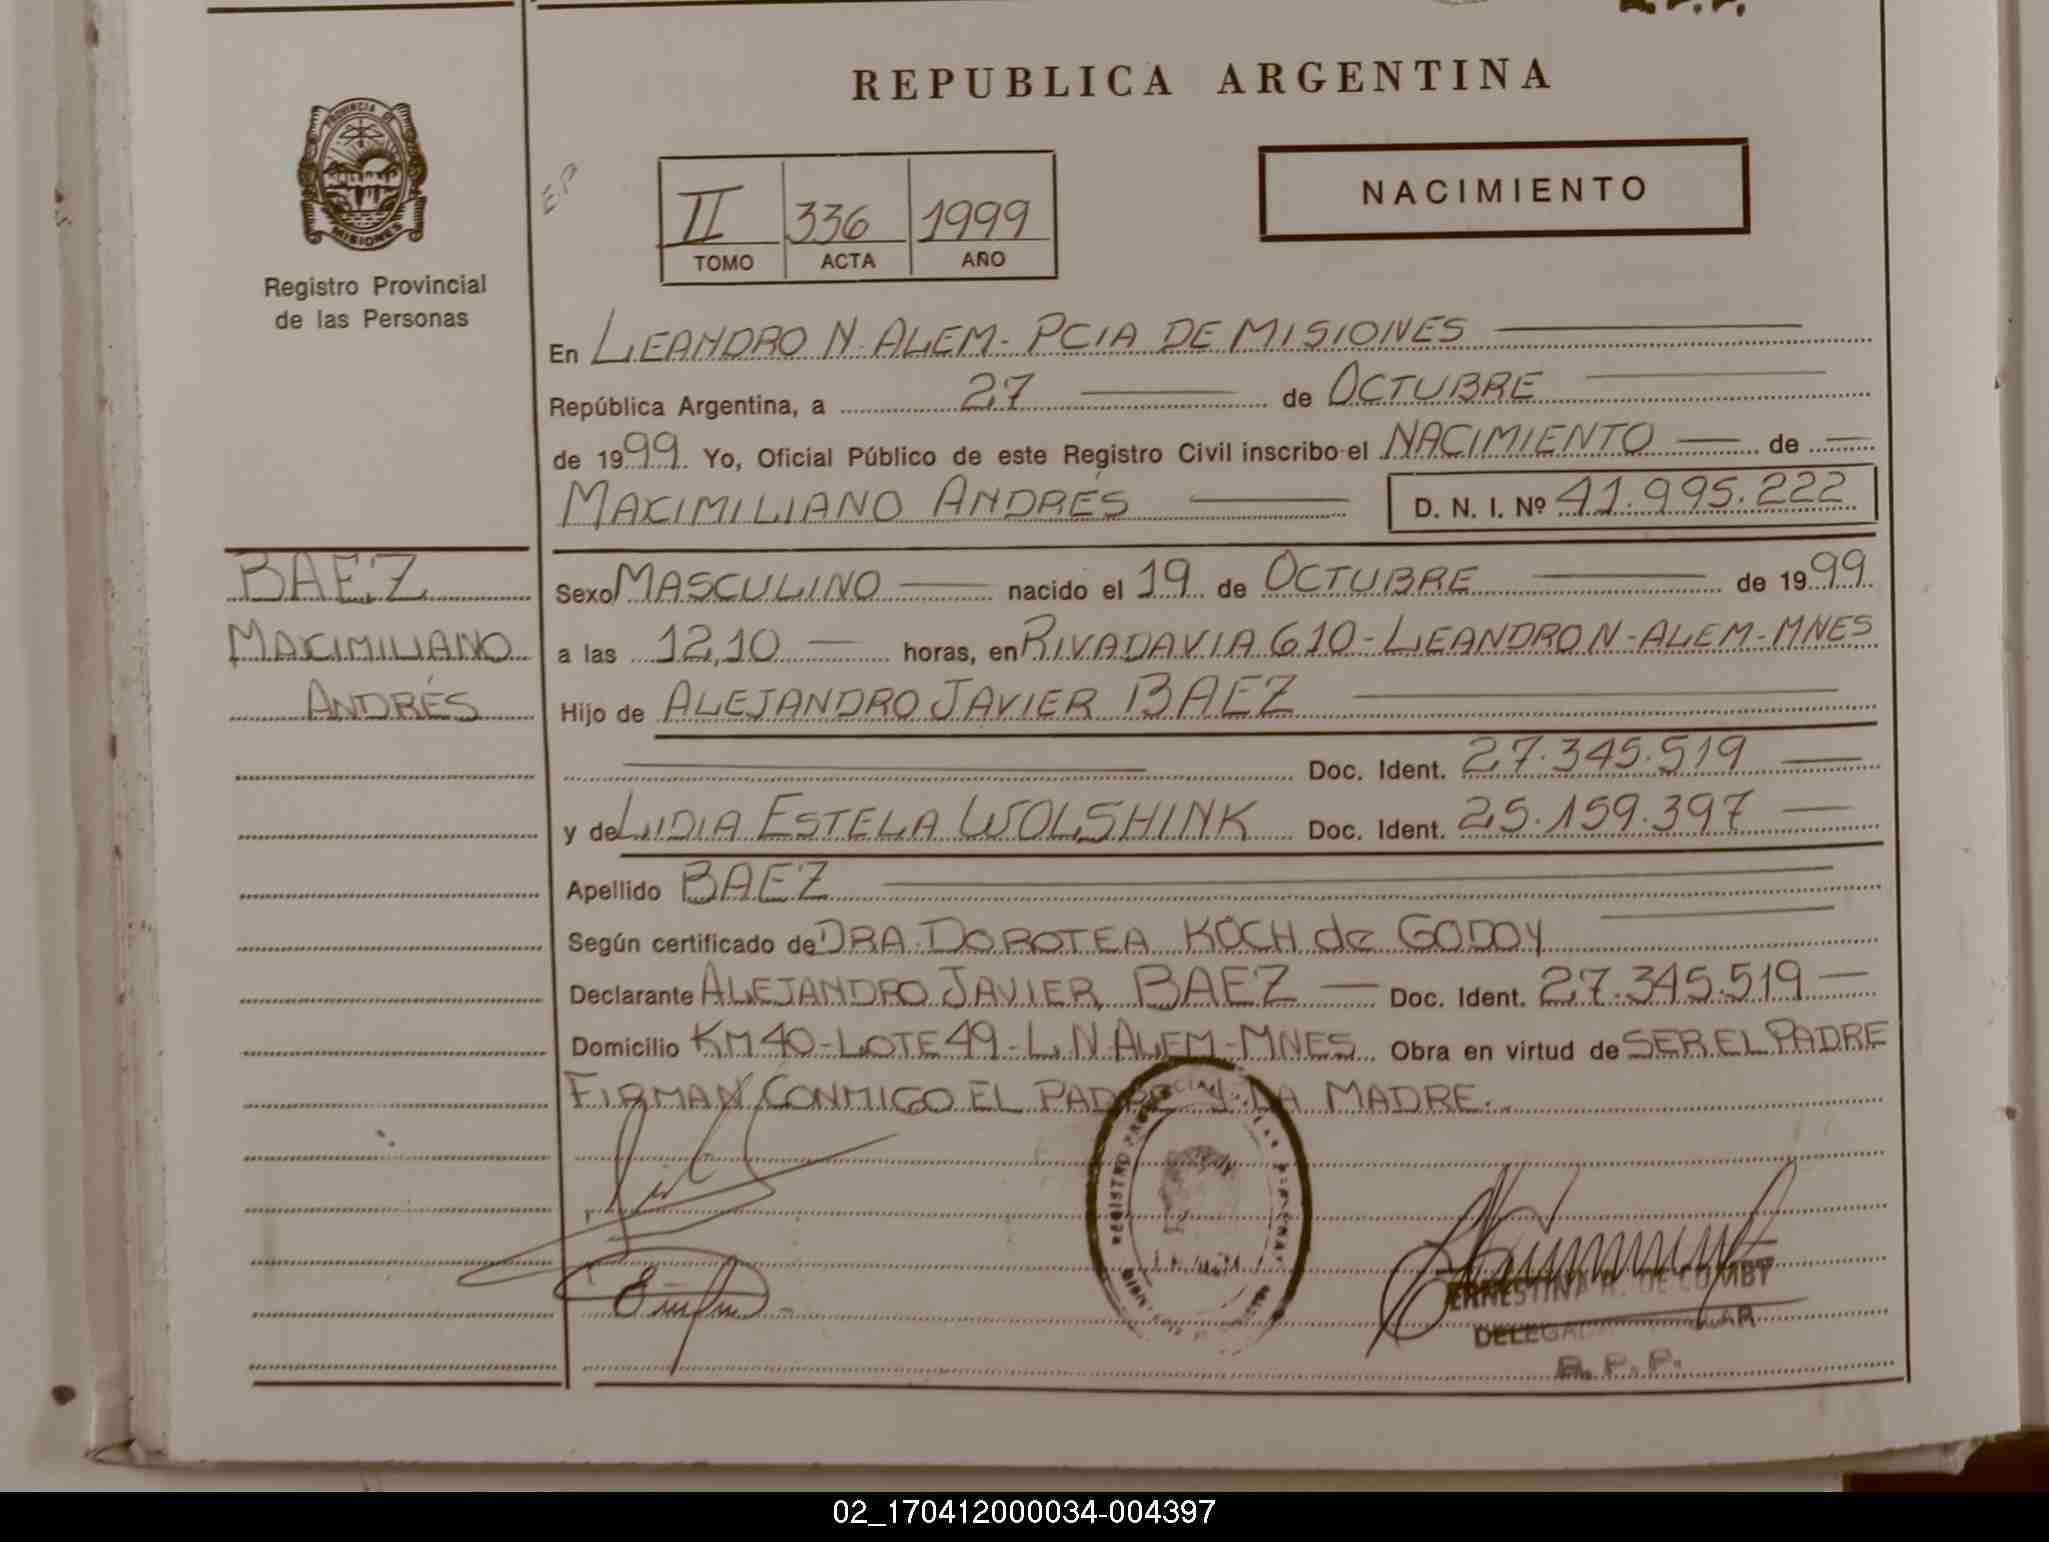 REPUBLICA ARGENTINA
PROVINCIA DE
MISIONES
Registro Provincial
de las Personas
EP
II 336 1999
TOMO ACTA AÑO
NACIMIENTO
En LEANDRO N. ALEM - PCIA DE MISIONES
República Argentina, a 27 de OCTUBRE
de 1999 Yo, Oficial Público de este Registro Civil inscribo el NACIMIENTO de
MAXIMILIANO ANDRÉS D. N. I. Nº 41.995.222
BAEZ
MAXIMILIANO
ANDRÉS
Sexo MASCULINO nacido el 19 de OCTUBRE de 1999
a las 12,10 horas, en RIVADAVIA 610 - LEANDRO N - ALEM - MNES
Hijo de ALEJANDRO JAVIER BAEZ
Doc. Ident. 27.345.519
y de LIDIA ESTELA WOLSHINK Doc. Ident. 25.159.397
Apellido BAEZ
Según certificado de DRA. DOROTEA KOCH de GODOY
Declarante ALEJANDRO JAVIER BAEZ Doc. Ident. 27.345.519
Domicilio KM 40 - LOTE 49 - L. N. ALEM - MNES Obra en virtud de SER EL PADRE
FIRMAN CONMIGO EL PADRE Y LA MADRE.
REGISTRO
ERNESTINA R. DE
R. P. P.
02_170412000034-004397